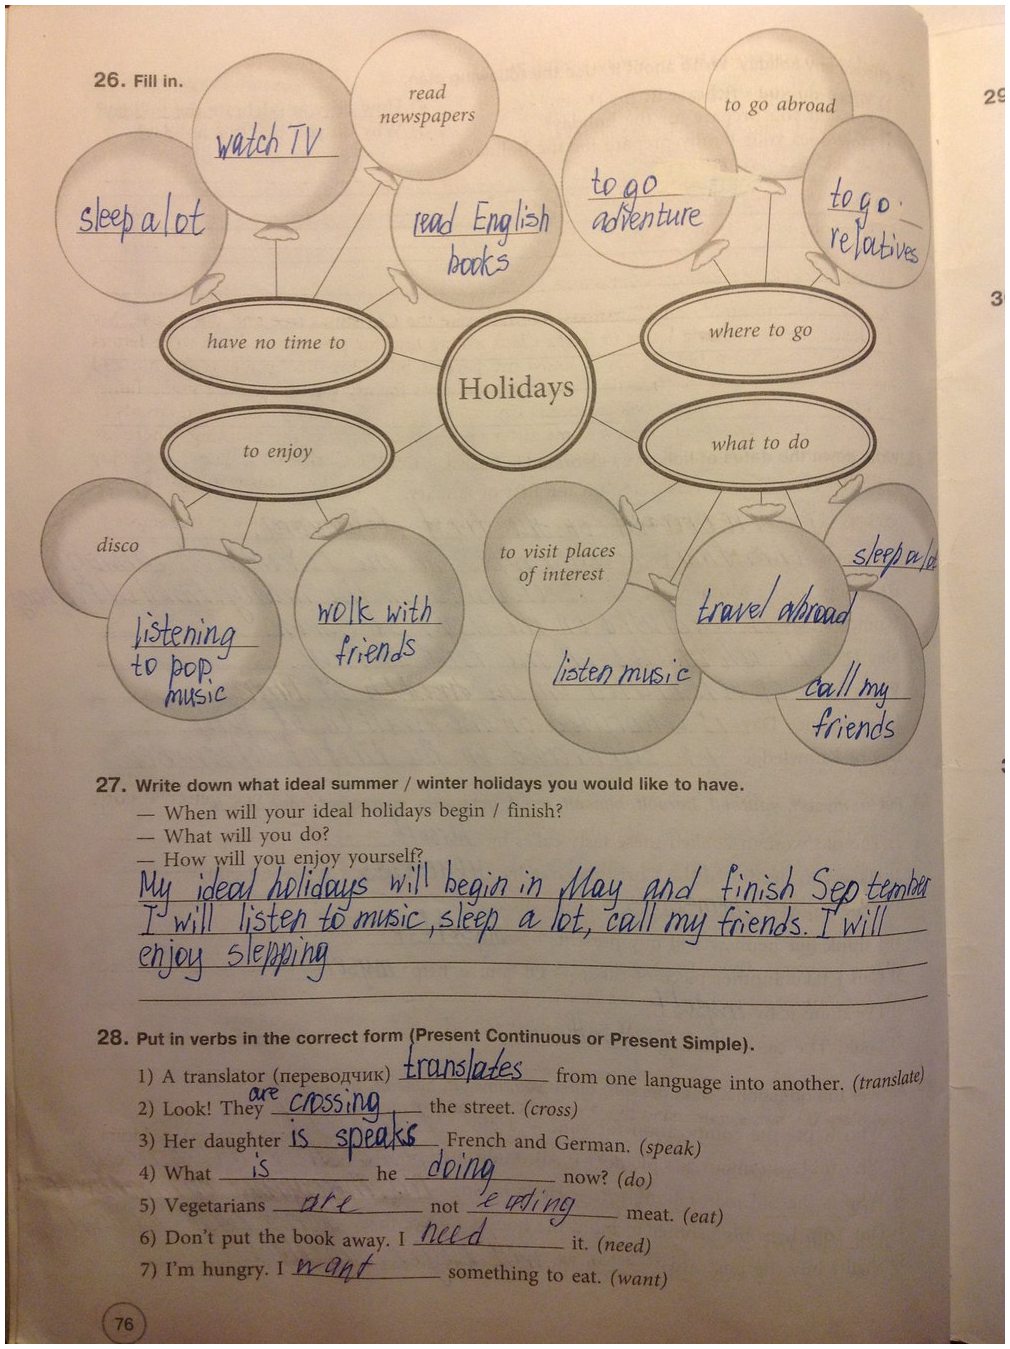 26. Fill in.
read
newspapers
to go abroad
watch TV
sleep a lot
read English
books
to go
adventure
to go
relatives
have no time to
where to go
Holidays
to enjoy
what to do
disco
to visit places
of interest
sleep a lot
listening
to pop
music
wolk with
friends
travel abroad
listen music
call my
friends
27. Write down what ideal summer / winter holidays you would like to have.
— When will your ideal holidays begin / finish?
— What will you do?
— How will you enjoy yourself?
My ideal holidays will begin in May and finish September
I will listen to music, sleep a lot, call my friends. I will
enjoy slepping
28. Put in verbs in the correct form (Present Continuous or Present Simple).
1) A translator (переводчик) translates from one language into another. (translate)
2) Look! They are crossing the street. (cross)
3) Her daughter is speaks French and German. (speak)
4) What is he doing now? (do)
5) Vegetarians are not eating meat. (eat)
6) Don't put the book away. I need it. (need)
7) I'm hungry. I want something to eat. (want)
76
29
3